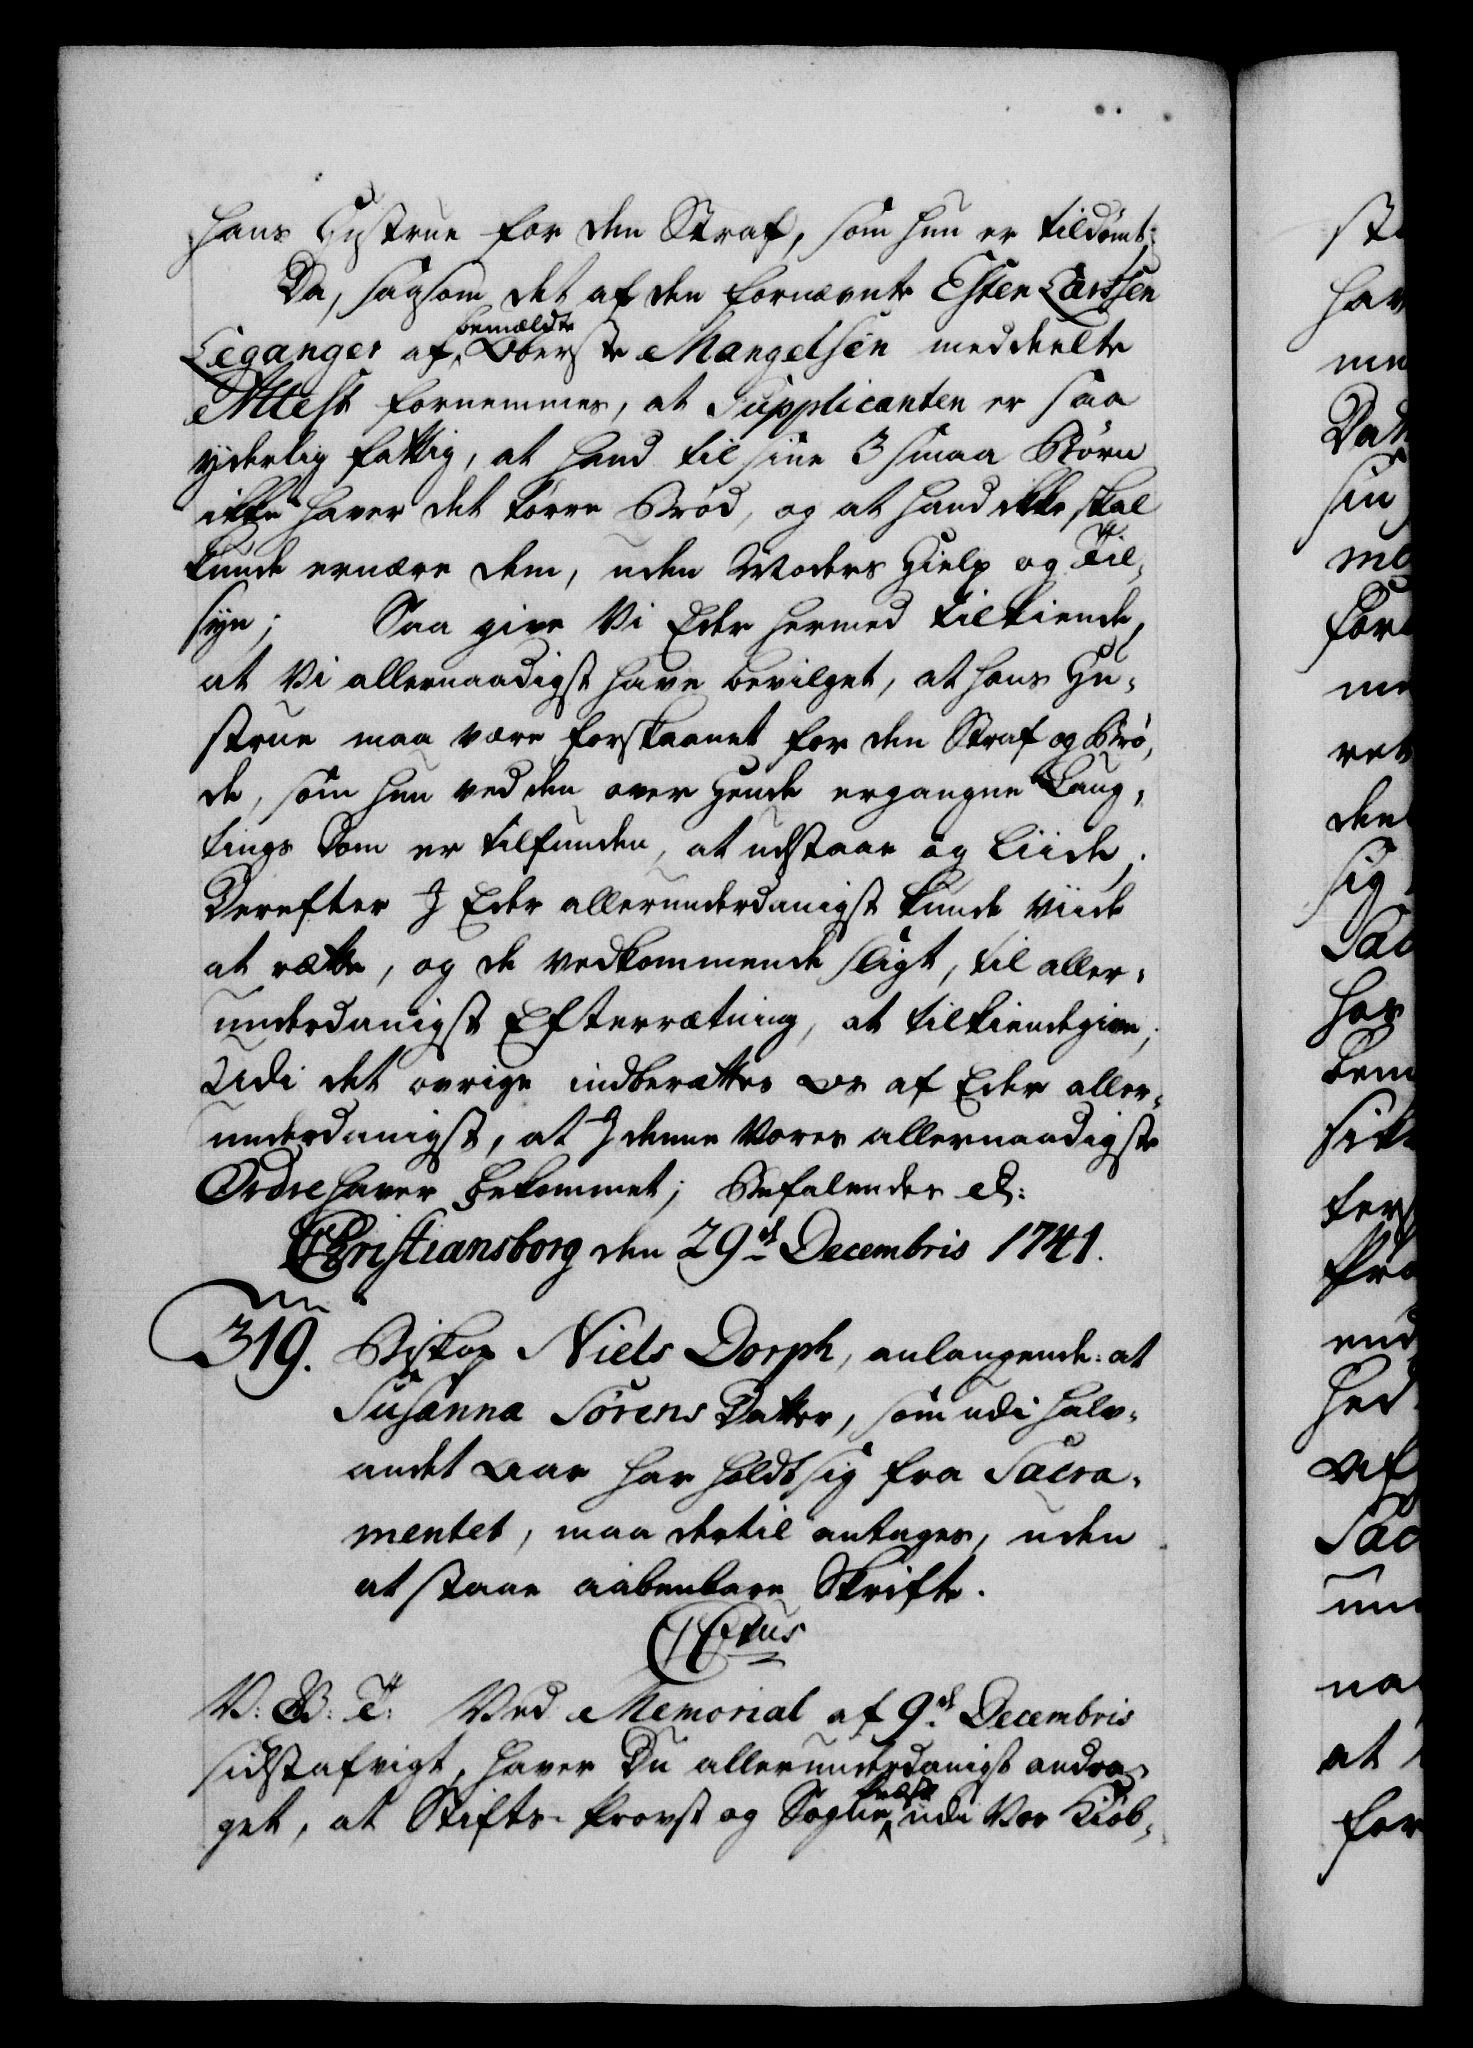 hans Hustrue for den Straf, som hun er tildømt;
Da, saasom det af den fornævnte Esten Larssen
Leganger af bemældte Oberste Mangelsen meddeelte
Attest fornemmes, at Supplicanten er saa
yderlig fattig, at hand til sine 3 smaa Børn
ikke haver det tørre Brød, og at hand ikke skal
kunde ernære dem, uden Moders Hielp og Til-
syn; Saa give Vi Eder hermed tilkiende,
at Vi allernaadigst have bevilget, at hans Hu-
strue maa være forskaanet for den Straf og Brø-
de, som hun ved den over hende ergangne Laug-
tings Dom er tilfunden, at udstaae og liide;
Derefter I Eder allerunderdanigst kunde viide
at rætte, og de vedkommende sligt, til aller-
underdanigst Efterrætning, at tilkiendegive;
Udi det øvrige indberættes Os af Eder aller-
underdanigst, at I denne Vores allernaadigste
Ordre haver bekommet; Befalendes etc:
Christiansborg den 29de Decembris 1741.
319. Biskop Niels Dorph, anlangende: at
Susanna Sørens Datter, som udi halv-
andet Aar har holdt sig fra Sacra-
mentet, maa dertil antages, uden
at staae aabenbare Skrifte.
CCtus
V: G: T: Ved Memorial af 9de Decembris
sidstafvigt, haver Du allerunderdanigst andra-
get, at Stifts-Provst og Sogne udi Vor Kiøb-